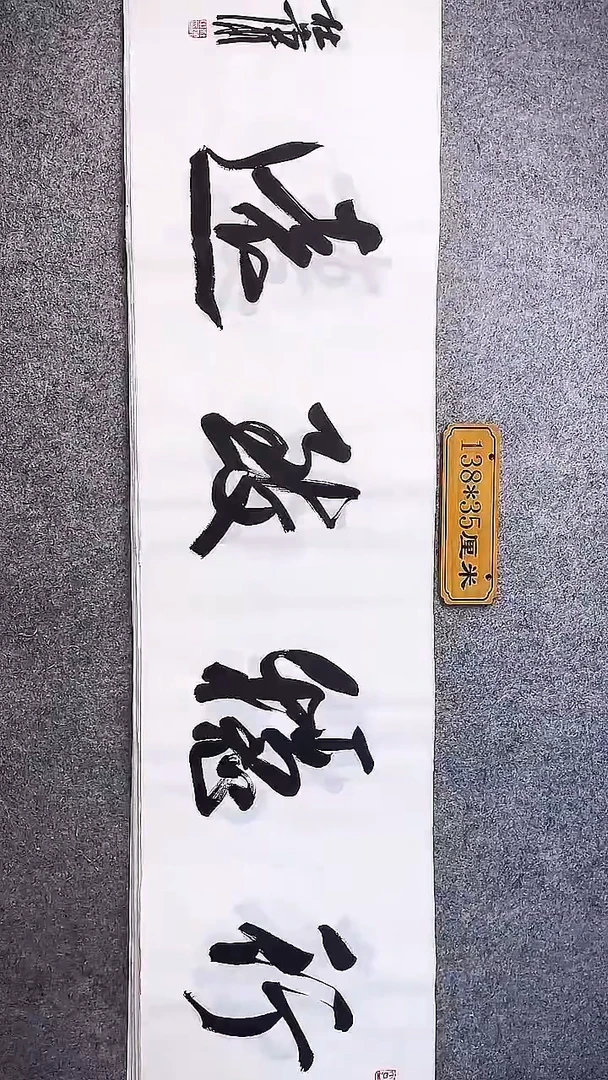 行穩致遠
138*35厘米